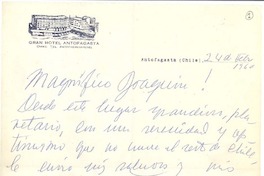 GRAN HOTEL ANTOFAGASTA
Antofagasta (Chile) 24 de
1960
Magnífico Joaquín!
Desde este lugar grandioso, pla-
netario, con una sociedad y op-
timismo que no hace el resto de Chile
le envío mis saludos y mis